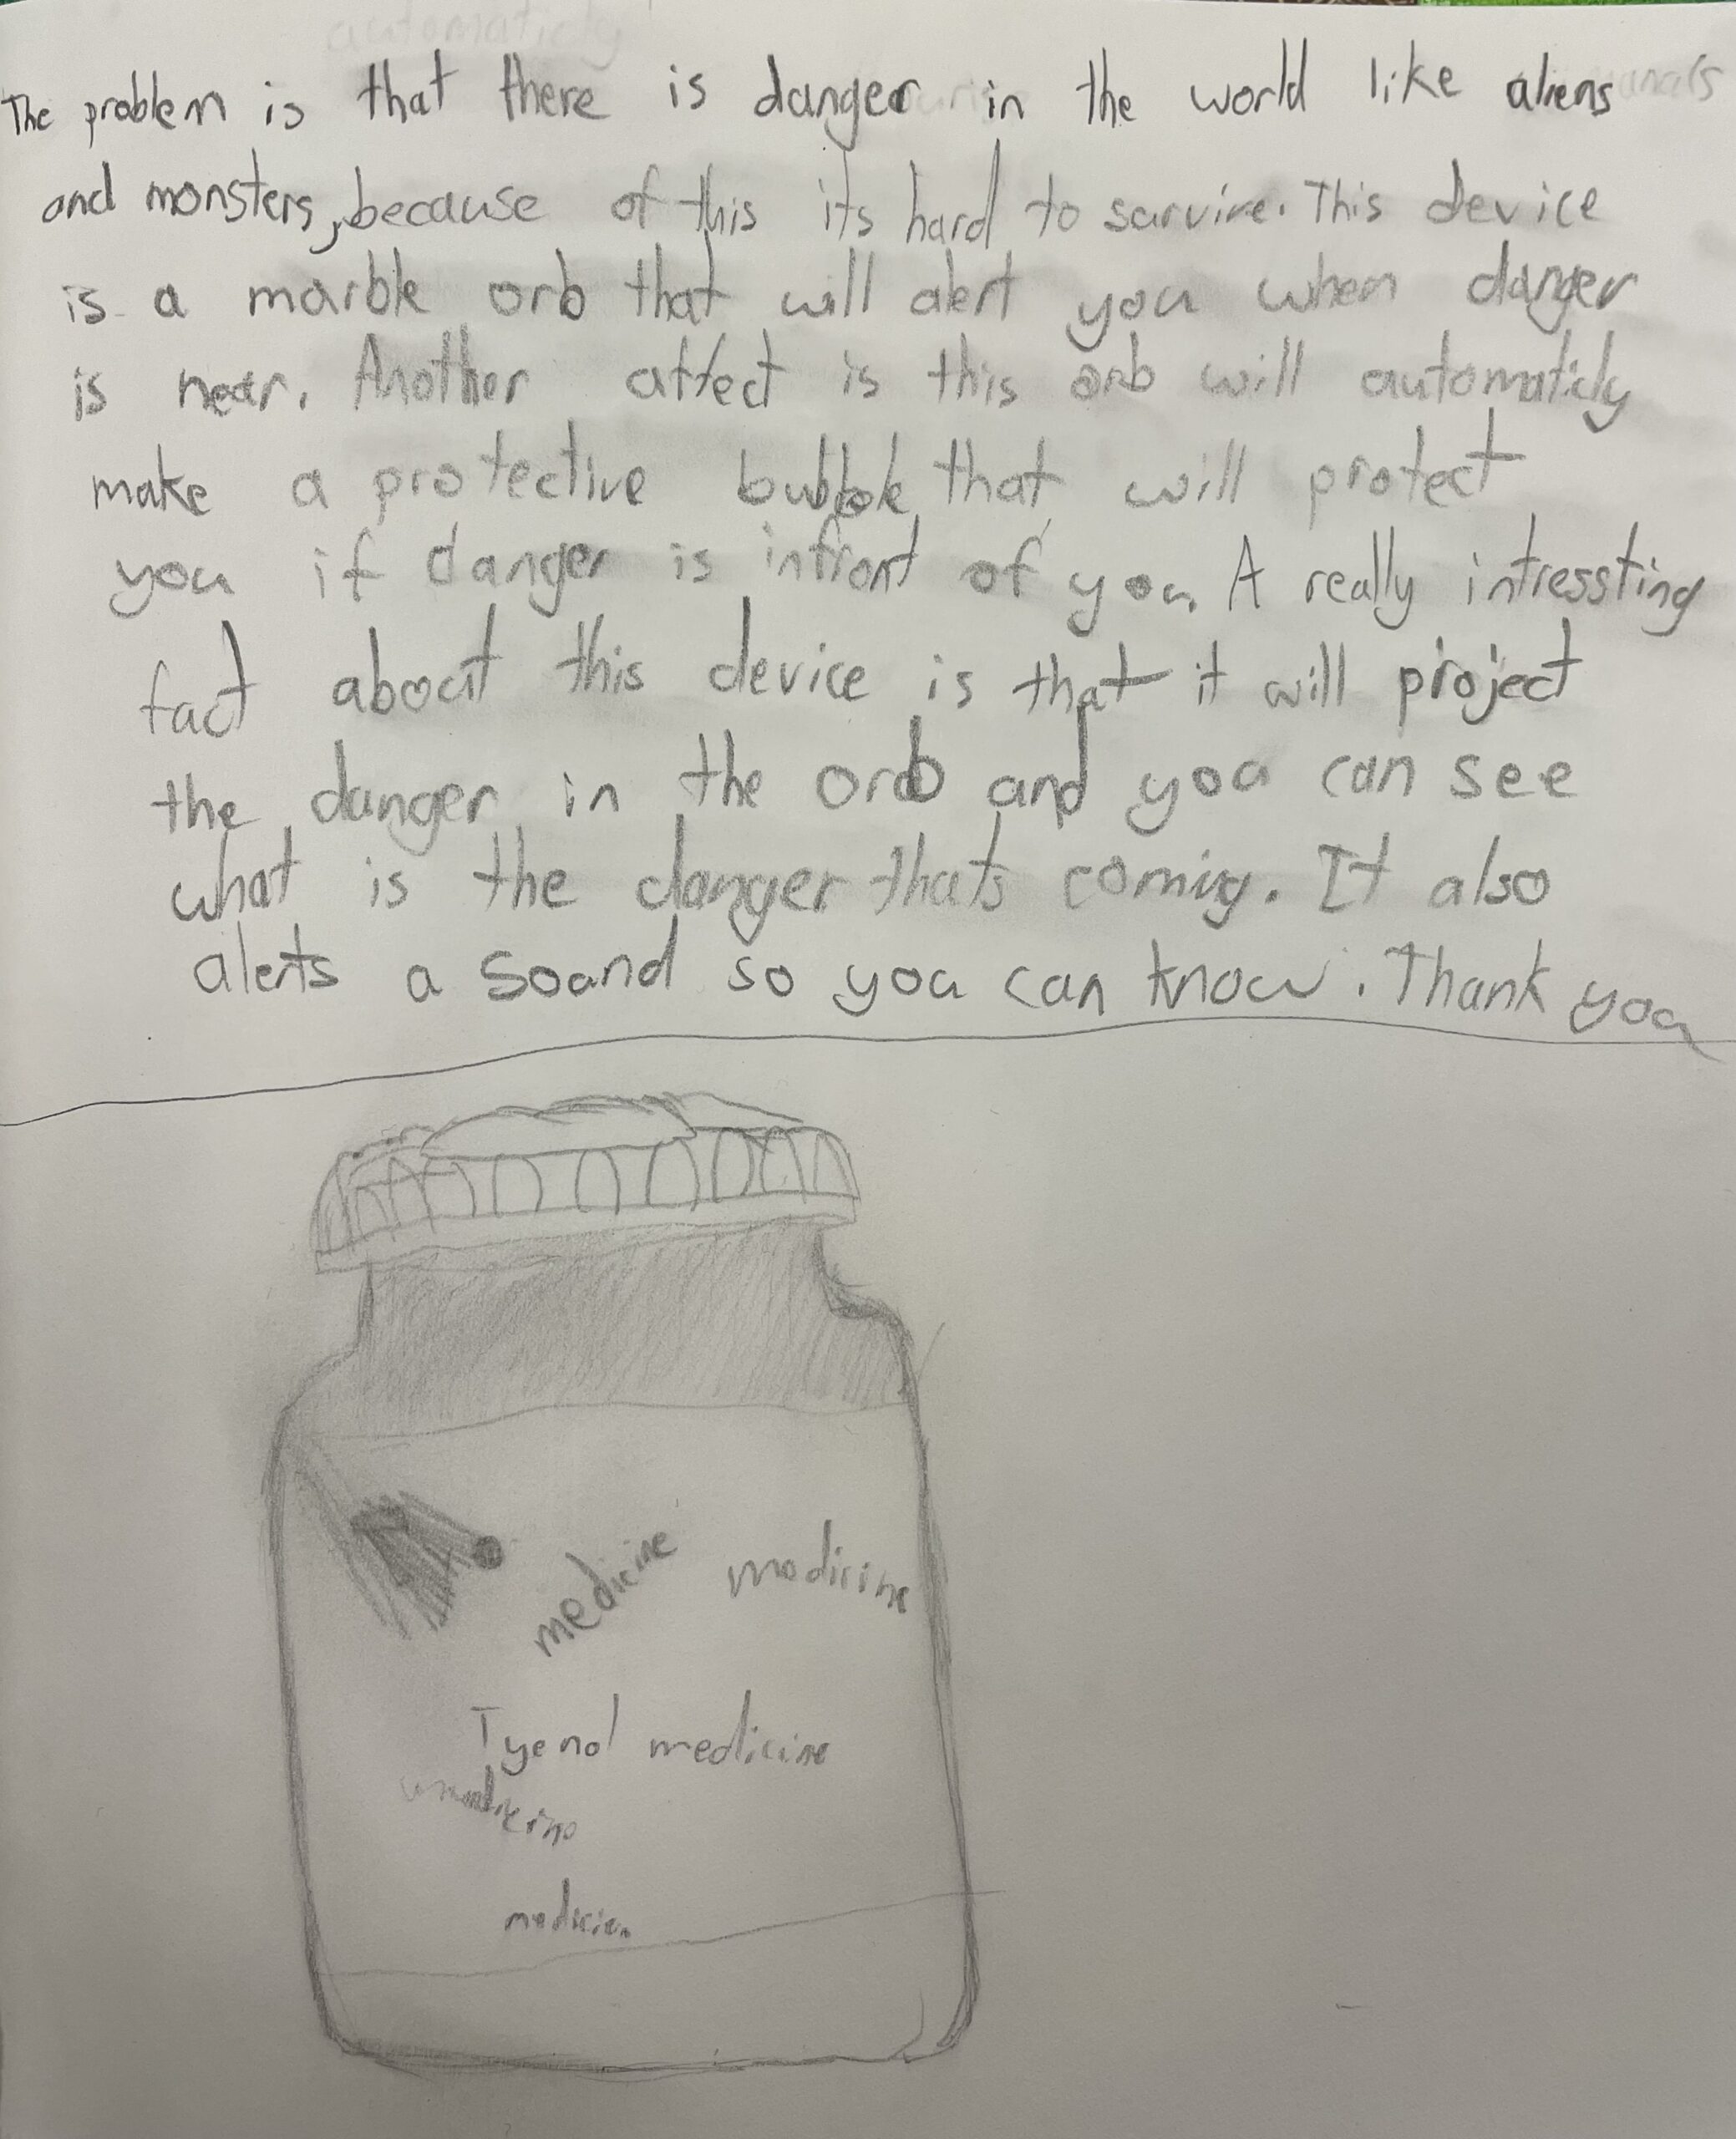 automaticly
The problem is that there is danger in the world like aliens
and monsters, because of this its hard to survive. This device
is a marble orb that will alert you when danger
is near. Another affect is this orb will automaticly
make a protective bubble that will protect
you if danger is infront of you. A really intressting
fact about this device is that it will project
the danger in the orb and you can see
what is the danger thats coming. It also
alerts a sound so you can know. Thank you
medicine medicine
Tyenol medicine
medicine